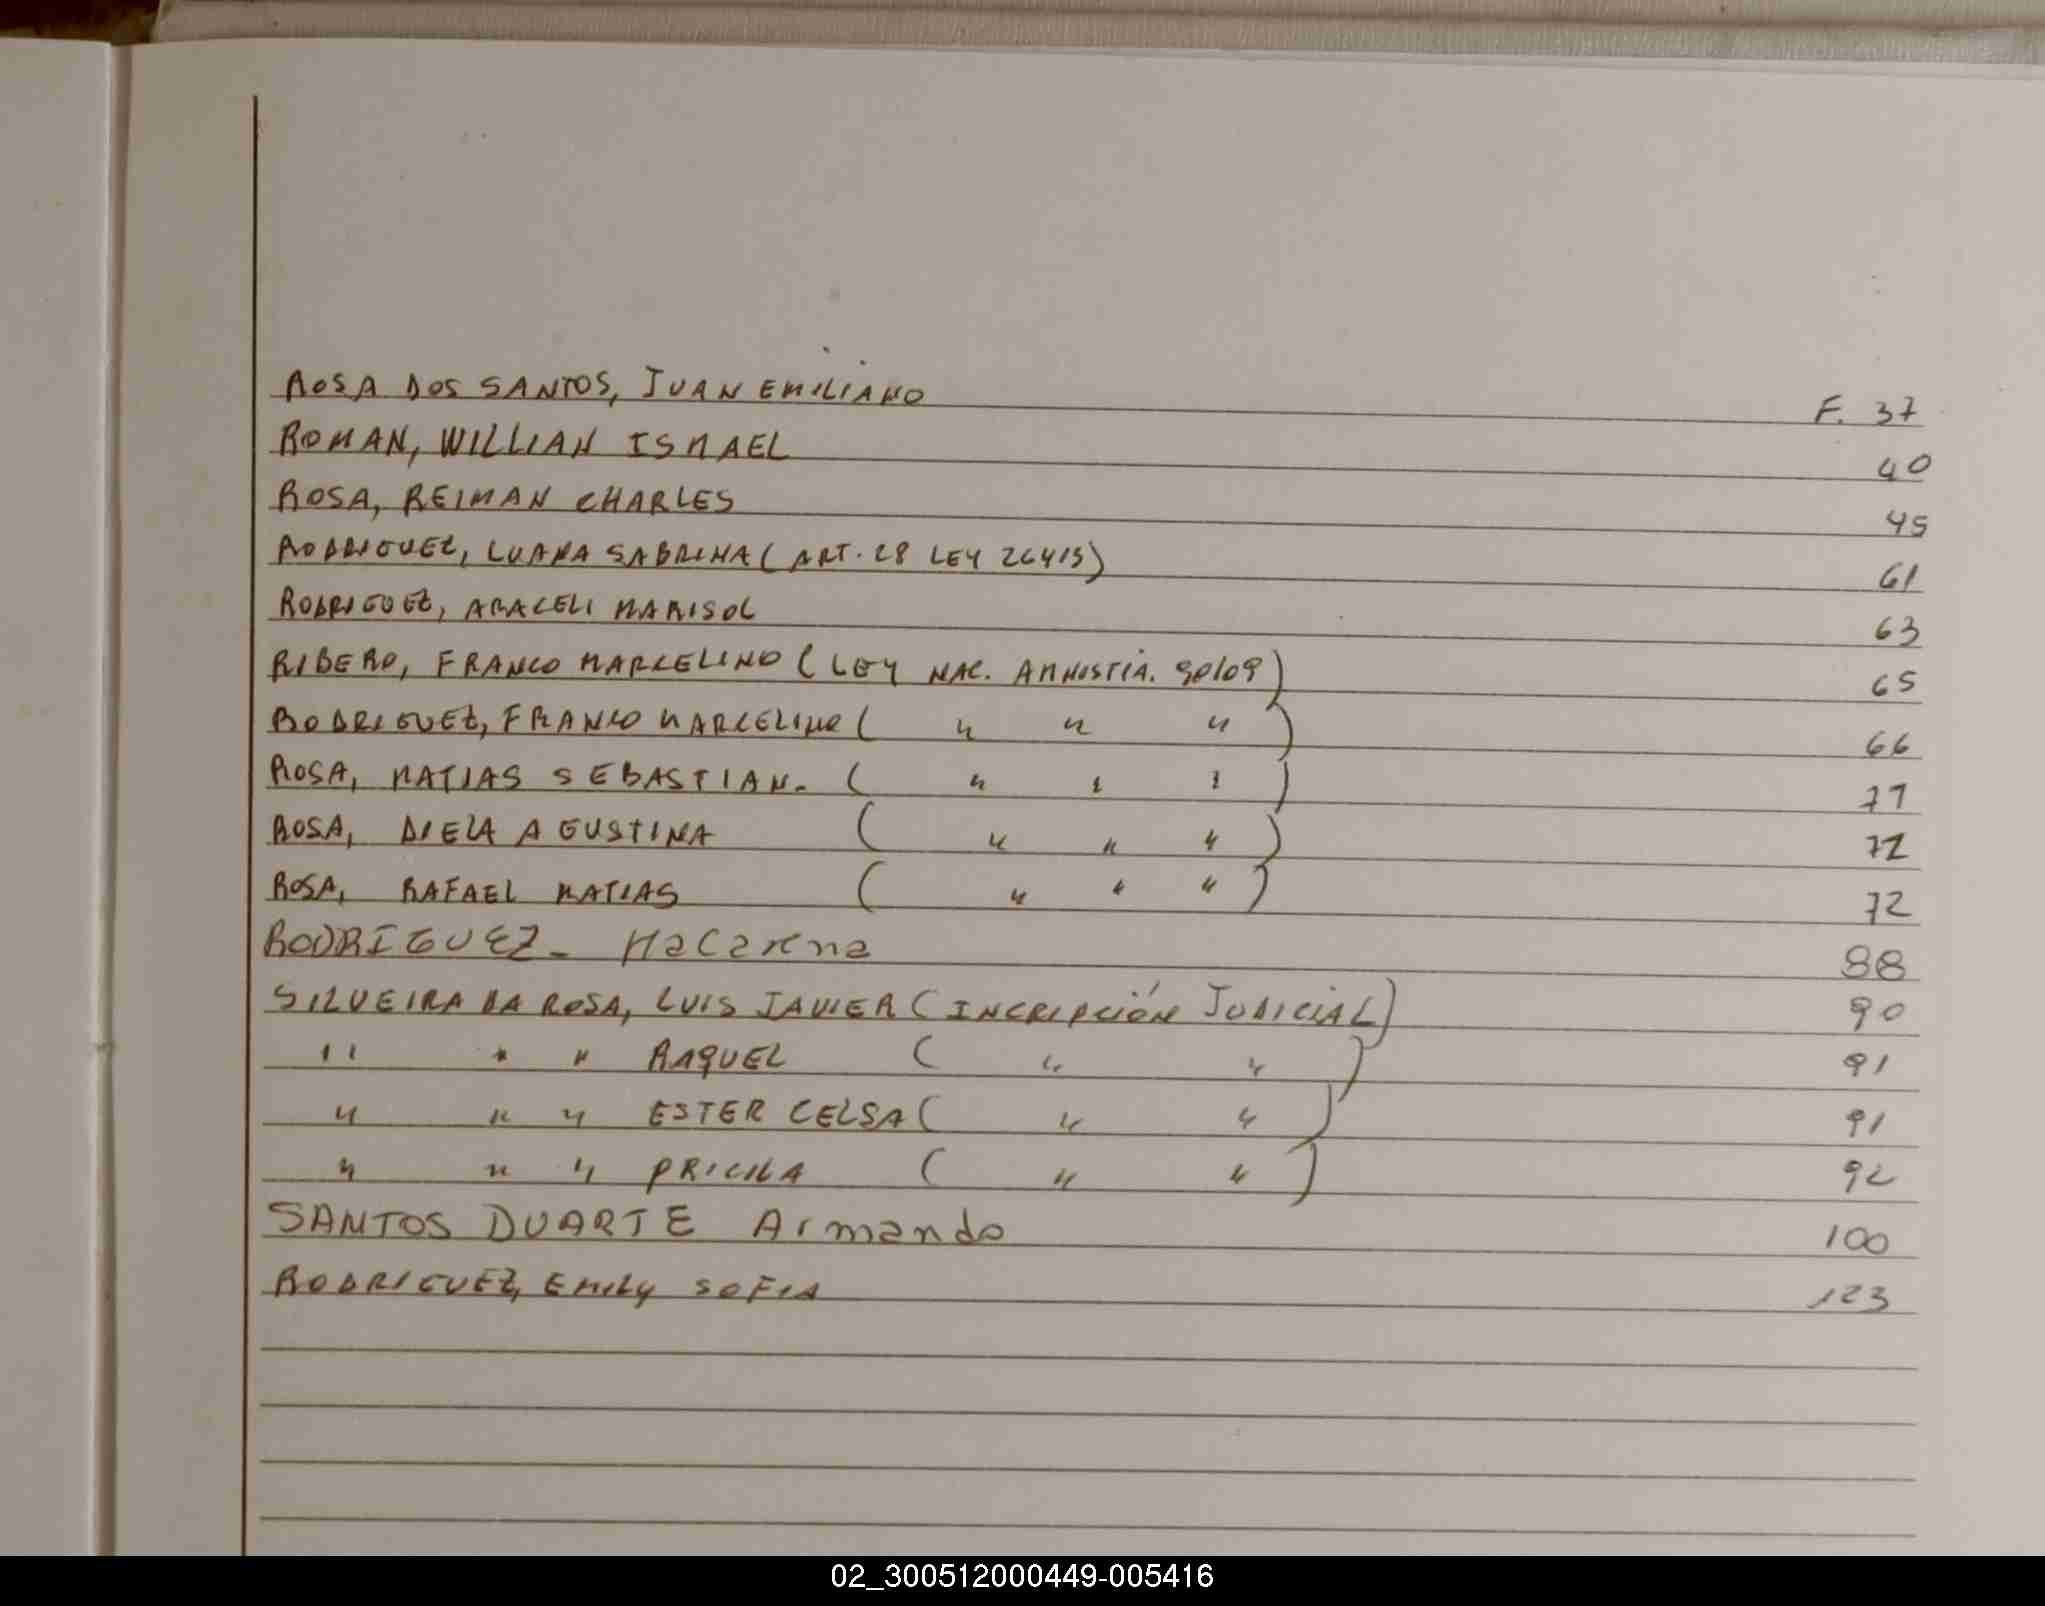 ROSA DOS SANTOS, JUAN EMILIANO F. 37
ROMAN, WILLIAN ISMAEL 40
ROSA, REIMAN CHARLES 45
RODRIGUEZ, LUANA SABRINA (ART. 28 LEY 26413) 61
RODRIGUEZ, ARACELI MARISOL 63
RIBERO, FRANCO MARCELINO (LEY NAC. AMNISTIA. 90/09) 65
RODRIGUEZ, FRANCO MARCELINO ( " " " ) 66
ROSA, MATIAS SEBASTIAN. ( " " " ) 71
ROSA, DIELA AGUSTINA ( " " " ) 72
ROSA, RAFAEL MATIAS ( " " " ) 72
RODRIGUEZ - Macarena 88
SILVEIRA DA ROSA, LUIS JAVIER (INCRIPCIÓN JUDICIAL) 90
" " " RAQUEL ( " " ) 91
" " " ESTER CELSA ( " " ) 91
" " " PRICILA ( " " ) 92
SANTOS DUARTE Armando 100
RODRIGUEZ, EMILY SOFIA 123
02_300512000449-005416